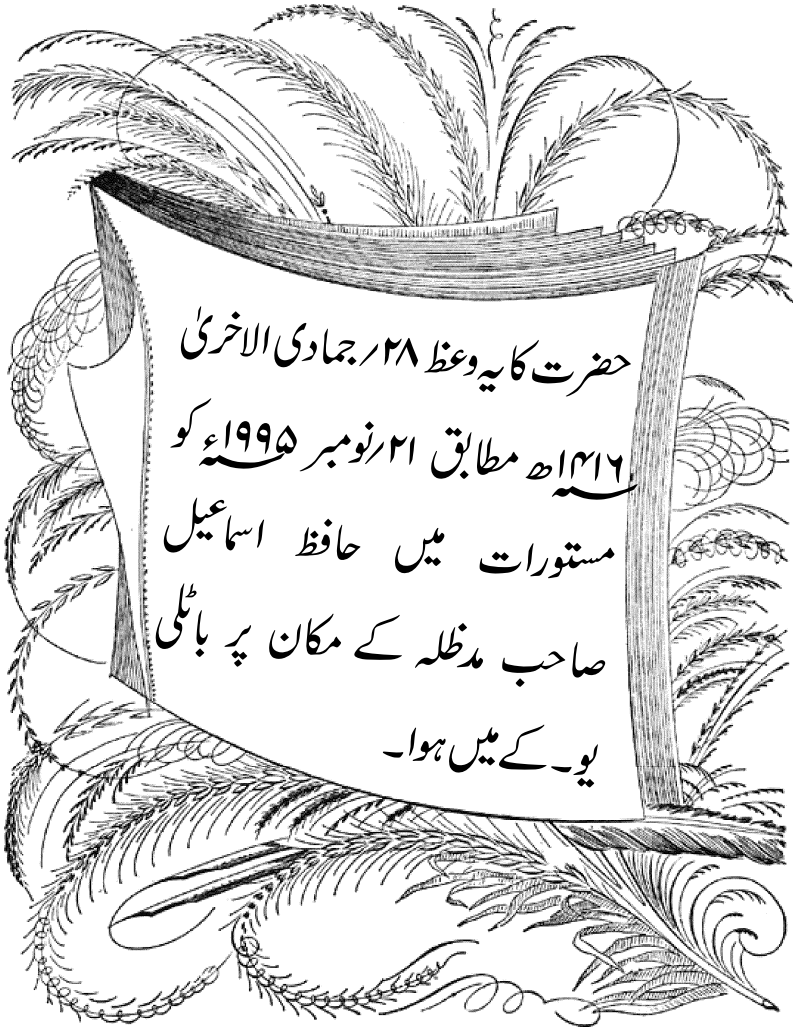 حضرت کا یہ وعظ ۲۸؍ جمادی الاخریٰ
۱۴۱۶؁ھ مطابق ۲۱؍نومبر ۱۹۹۵؁ء کو
مستورات میں حافظ اسماعیل
صاحب مدظلہ کے مکان پر باٹلی
یو۔کے میں ہوا۔